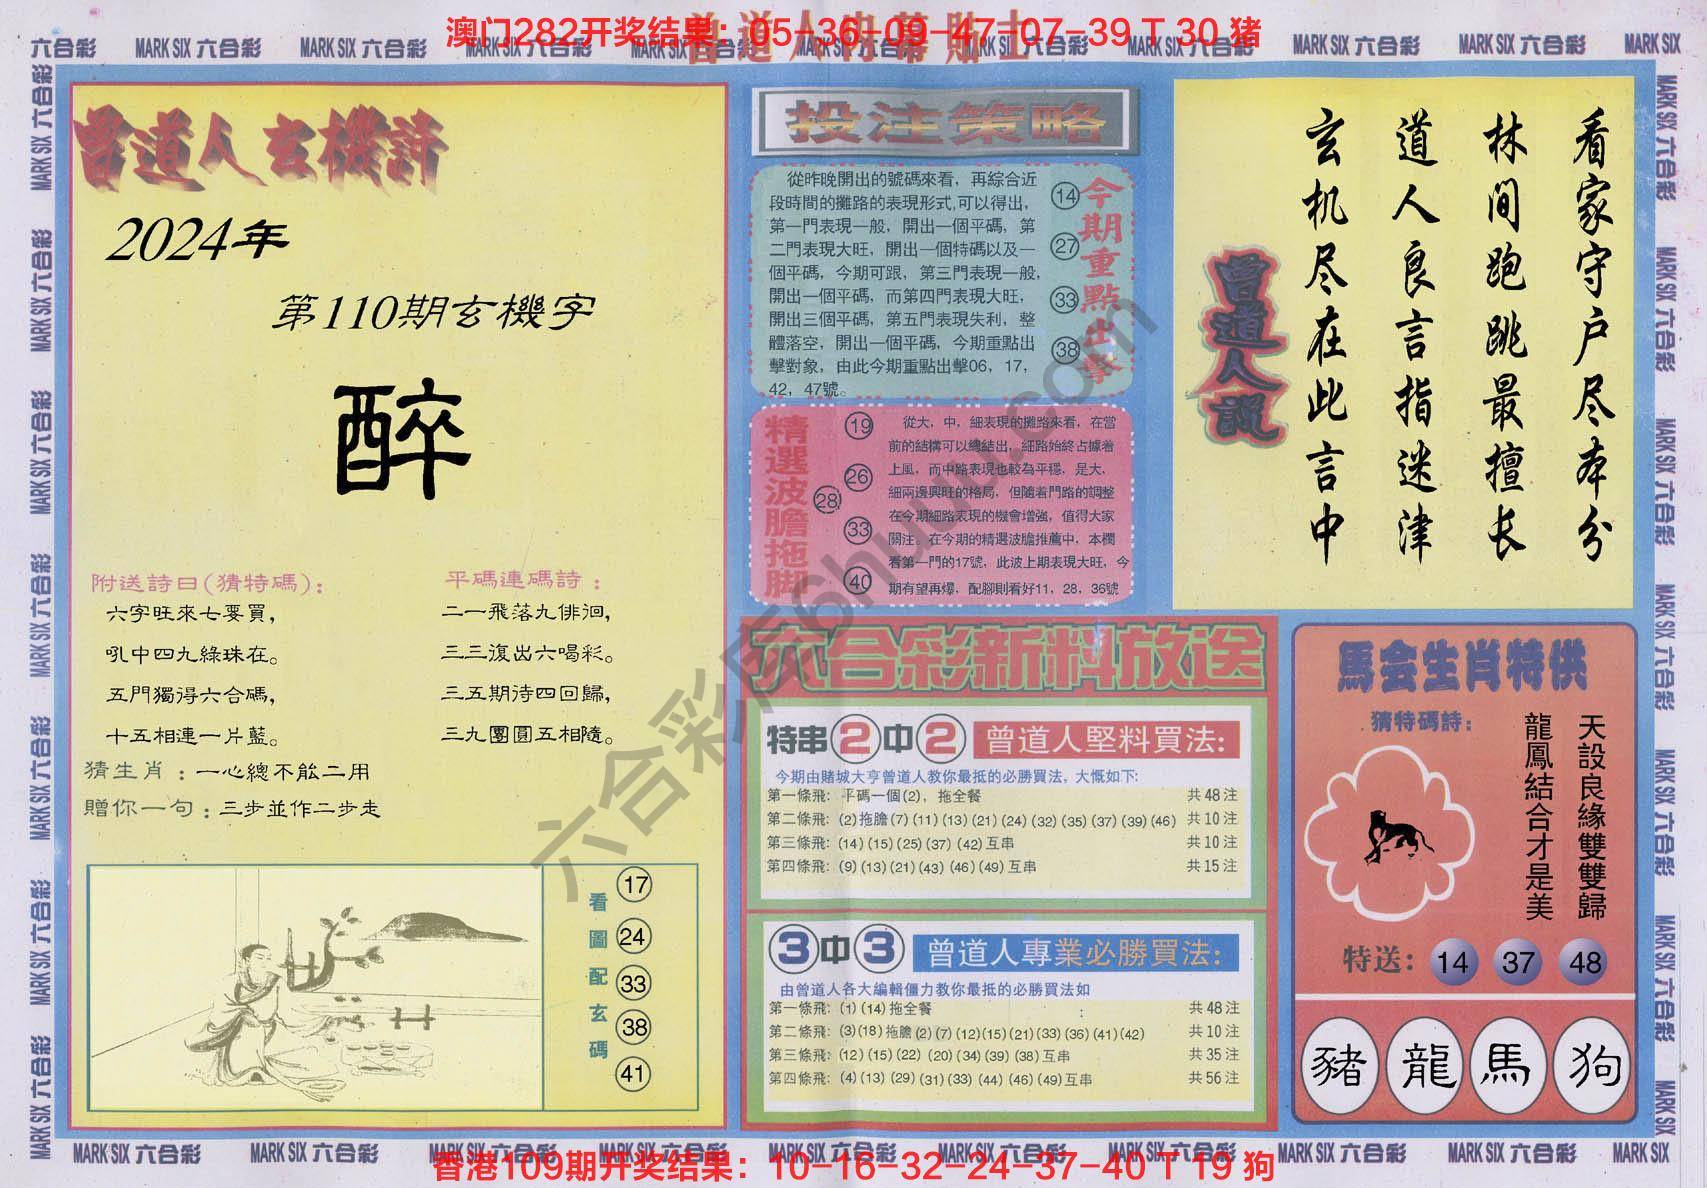 澳门282开奖结果：05-36-09-47-07-39 T 30 猪
曾道人內幕貼士
六合彩 MARK SIX 六合彩 MARK SIX 六合彩 MARK SIX 六合彩 MARK SIX 六合彩 MARK SIX 六合彩 MARK SIX 六合彩 MARK SIX
曾道人玄機詩
2024年
第110期玄機字
醉
附送詩曰(猜特碼)：
六字旺來七要買，
吼中四九綠珠在。
五門獨得六合碼，
十五相連一片藍。
平碼連碼詩：
二一飛落九俳徊，
三三復出六喝彩。
三五期待四回歸，
三九團圓五相隨。
猜生肖：一心總不能二用
贈你一句：三步並作二步走
看圖配玄碼
17
24
33
38
41
投注策略
從昨晚開出的號碼來看，再綜合近
段時間的攤路的表現形式,可以得出，
第一門表現一般，開出一個平碼，第
二門表現大旺，開出一個特碼以及一
個平碼，今期可跟，第三門表現一般，
開出一個平碼，而第四門表現大旺，
開出三個平碼，第五門表現失利，整
體落空，開出一個平碼，今期重點出
擊對象，由此今期重點出擊06，17，
42，47號。
14
27
33
38
今期重點出擊
精選波膽拖脚
19
26
28
33
40
從大，中，細表現的攤路來看，在當
前的結構可以總結出，細路始終占據着
上風，而中路表現也較為平穩，是大，
細兩邊興旺的格局，但隨着門路的調整
在今期細路表現的機會增強，值得大家
關注。在今期的精選波膽推薦中，本欄
看第一門的17號，此波上期表現大旺，今
期有望再爆，配腳則看好11，28，36號
看家守户尽本分
林间跑跳最擅长
道人良言指迷津
玄机尽在此言中
曾道人説
六合彩新料放送
特串2中2 曾道人堅料買法：
今期由賭城大亨曾道人教你最抵的必勝買法，大慨如下:
第一條飛：平碼一個(2)，拖全餐 共48注
第二條飛：(2)拖膽(7)(11)(13)(21)(24)(32)(35)(37)(39)(46) 共10注
第三條飛：(14)(15)(25)(37)(42)互串 共10注
第四條飛：(9)(13)(21)(43)(46)(49)互串 共15注
3中3 曾道人專業必勝買法：
由曾道人各大編輯僵力教你最抵的必勝買法如
第一條飛：(1)(14)拖全餐 共48注
第二條飛：(3)(18)拖膽(2)(7)(12)(15)(21)(33)(36)(41)(42) 共10注
第三條飛：(12)(15)(22)(20)(34)(39)(38)互串 共35注
第四條飛：(4)(13)(29)(31)(33)(44)(46)(49)互串 共56注
馬会生肖特供
猜特碼詩：
天設良緣雙雙歸
龍鳳結合才是美
特送：14 37 48
豬 龍 馬 狗
六合彩库6huuu.com
MARK SIX 六合彩 MARK SIX 六合彩 MARK SIX 六合彩 MARK SIX 六合彩 MARK SIX 六合彩 MARK SIX 六合彩 MARK SIX
香港109期开奖结果：10-16-32-24-37-40 T 19 狗